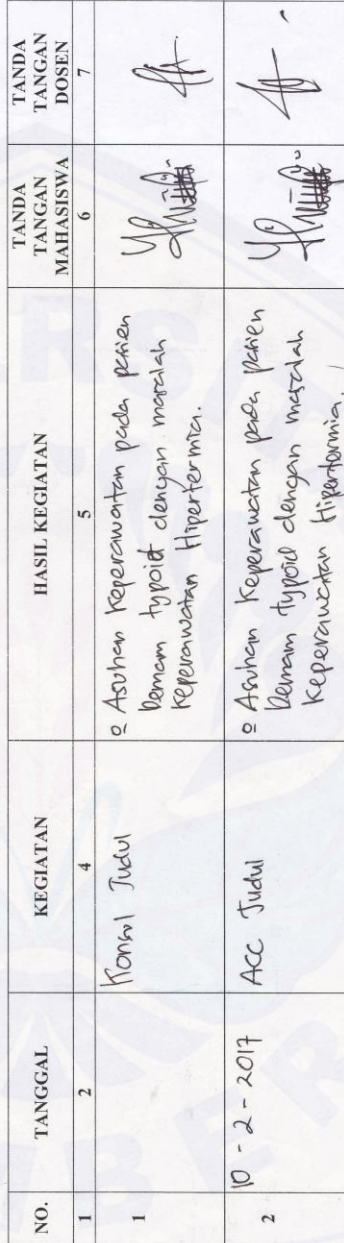 NO. TANGGAL KEGIATAN HASIL KEGIATAN TANDA TANGAN MAHASISWA TANDA TANGAN DOSEN
1 2 4 5 6 7
1 Konsul Judul o Asuhan Keperawatan pada pasien
Demam typoid dengan masalah
Keperawatan Hipertermia.
2 10 - 2 - 2017 ACC Judul o Asuhan Keperawatan pada pasien
Demam typoid dengan masalah
Keperawatan Hipertermia.